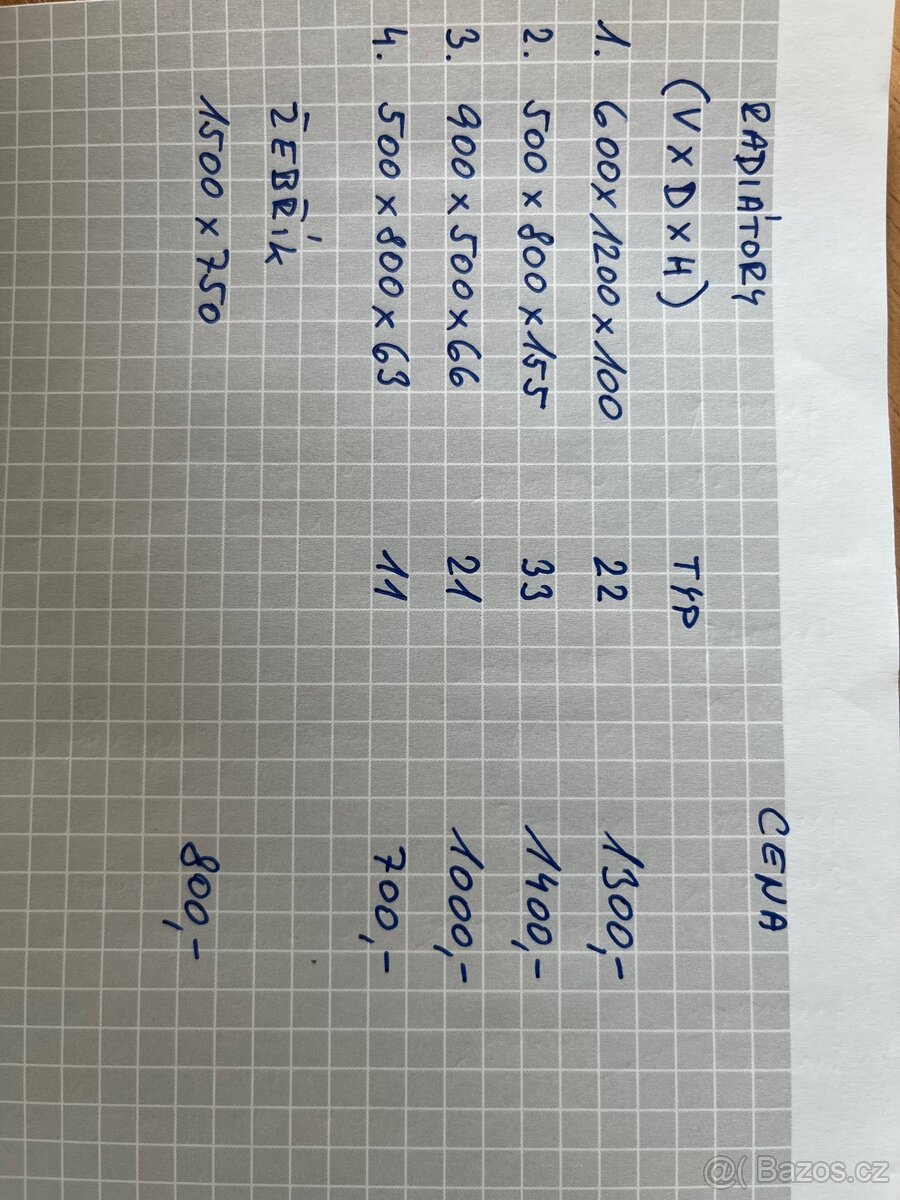 RADIÁTORY CENA
(V x D x H) TYP
1. 600 x 1200 x 100 22 1300,-
2. 500 x 800 x 155 33 1400,-
3. 900 x 500 x 66 21 1000,-
4. 500 x 800 x 63 11 700,-
ŽEBŘÍK
1500 x 750 800,-
@( Bazos.cz